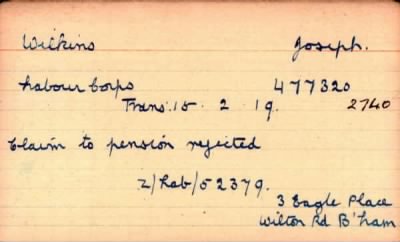 Wilkins Joseph.
Labour Corps 477320
Trans. 15. 2 19. 2740
Claim to pension rejected
2/Lab/52379.
3 Eagle Place
Wilton Rd B'ham